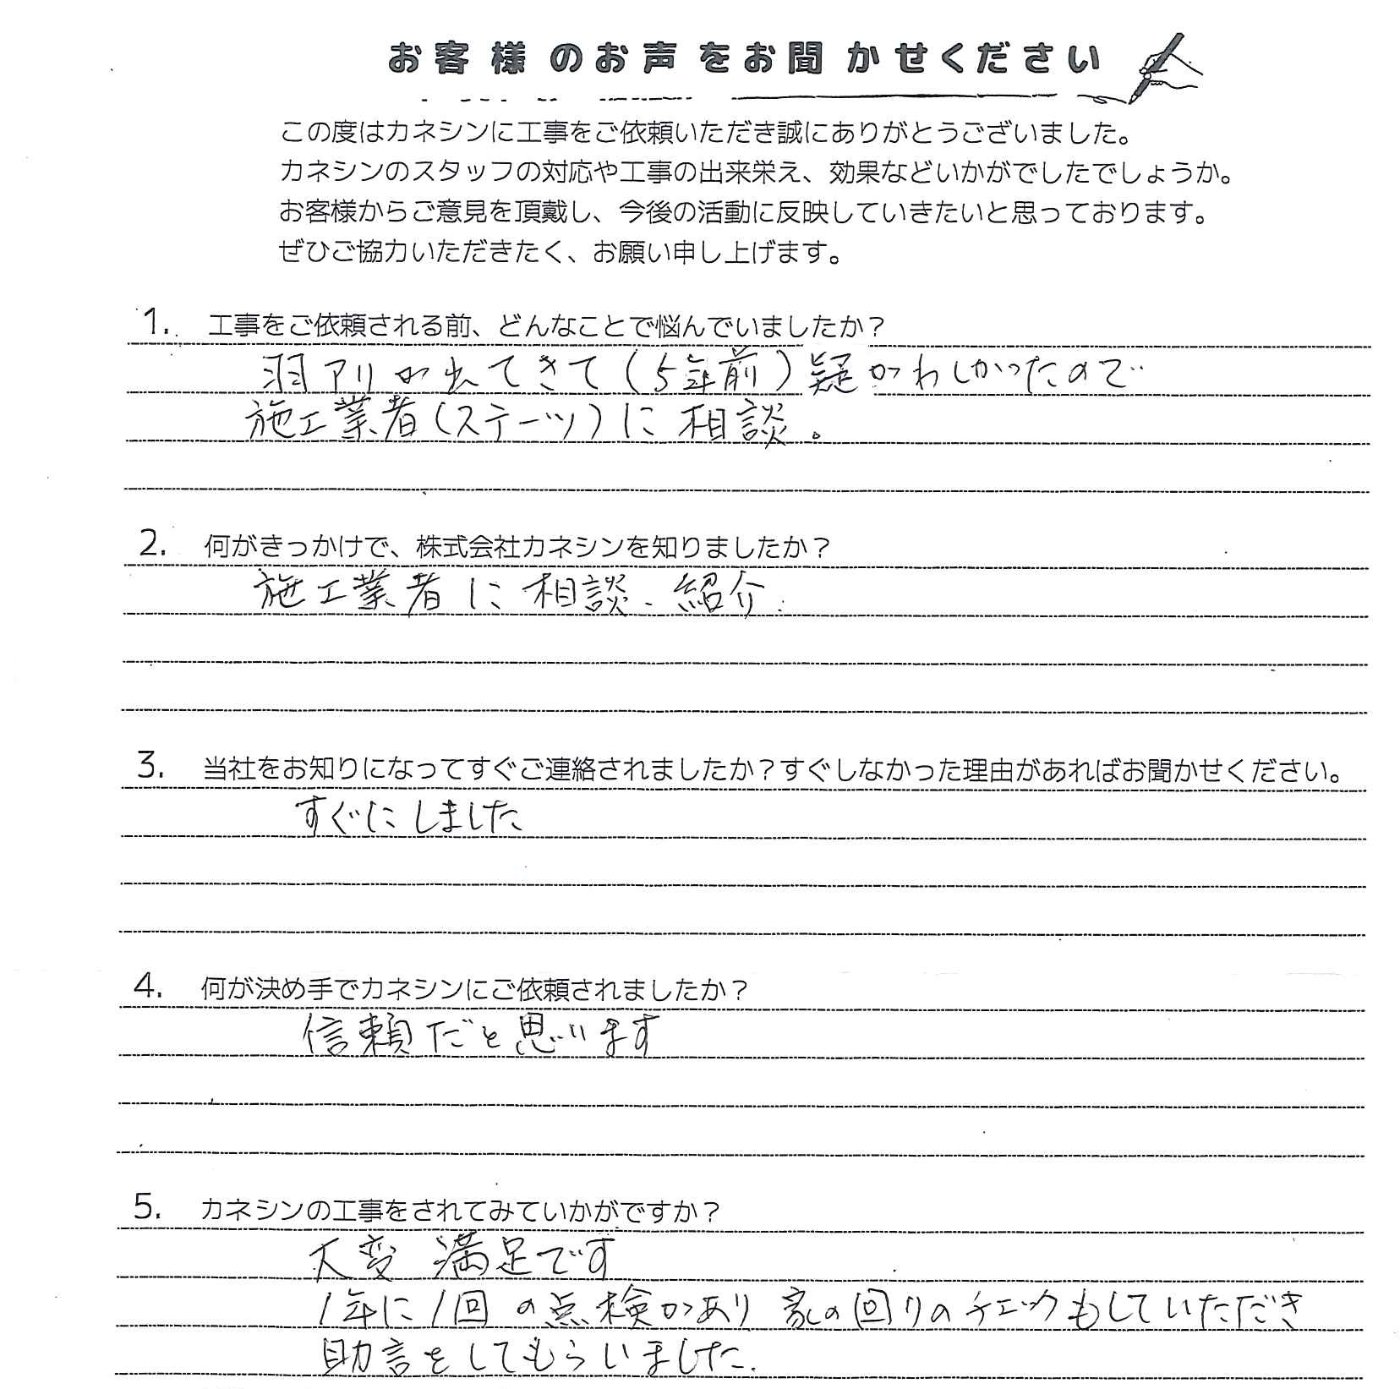 お客様のお声をお聞かせください
この度はカネシンに工事をご依頼いただき誠にありがとうございました。
カネシンのスタッフの対応や工事の出来栄え、効果などいかがでしたでしょうか。
お客様からご意見を頂戴し、今後の活動に反映していきたいと思っております。
ぜひご協力いただきたく、お願い申し上げます。
1. 工事をご依頼される前、どんなことで悩んでいましたか？
羽アリが出てきて(5年前)疑がわしかったので
施工業者(ステーツ)に相談。
2. 何がきっかけで、株式会社カネシンを知りましたか？
施工業者に相談、紹介.
3. 当社をお知りになってすぐご連絡されましたか？すぐしなかった理由があればお聞かせください。
すぐにしました
4. 何が決め手でカネシンにご依頼されましたか？
信頼だと思います
5. カネシンの工事をされてみていかがですか？
大変 満足です
1年に1回の点検があり 家の回りのチェックもしていただき
助言をしてもらいました.